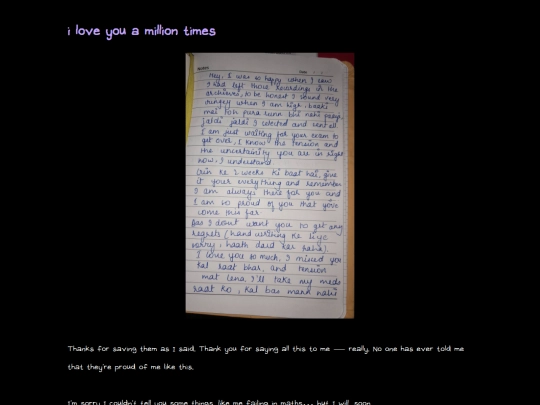 i love you a million times
Hey, I was so happy when I saw
I had left those recordings in the
archieves, to be honest I sound very
when I am high, baaki
mai toh pura sunn bhi nahi payi,
jaldi jaldi I selected and sent all
I am just waiting for your exam to
get over, I know the tension and
the uncertainity you are in right
now, I understand
Din ke 2 weeks ki baat hai, give
it your everything and remember
I am always there for you and
I am so proud of you that you've
come this far.
Bas I don't want you to get any
regrets (hand writing ke liye
sorry, haath dard kar raha).
I love you so much, I missed you
kal raat bhar, and tension
mat lena, I'll take my meds
raat ko, kal bas mann nahi
Thanks for saving them as I said, Thank you for saying all this to me — really. No one has ever told me
that they're proud of me like this.
I'm sorry I couldn't tell you some things, like me failing in maths... but I will, soon